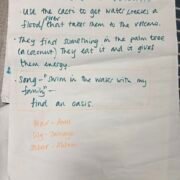 · Use the cacts to get water creates a
river
flood/ that takes them to the volcano.
· They find something in the palm tree
(a coconut) They eat it and it gives
them energy.
· Song - "Swim in the water with my
family" -
find an oasis.